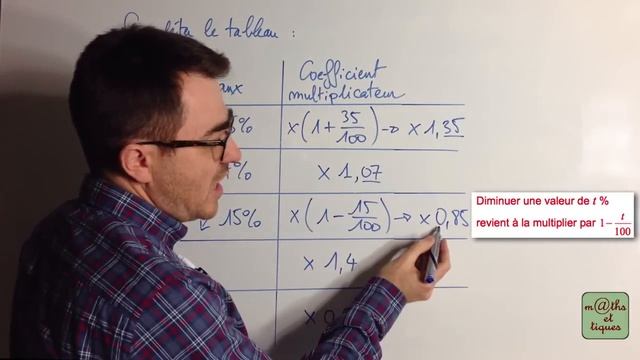 le tableau :
Coefficient
multiplicateur
% × (1 + 35/100) → × 1,35
% × 1,07
↓ 15% × (1 − 15/100) → × 0,85
× 1,4
×
Diminuer une valeur de t %
revient à la multiplier par 1− t/100
m@ths
et
tiques